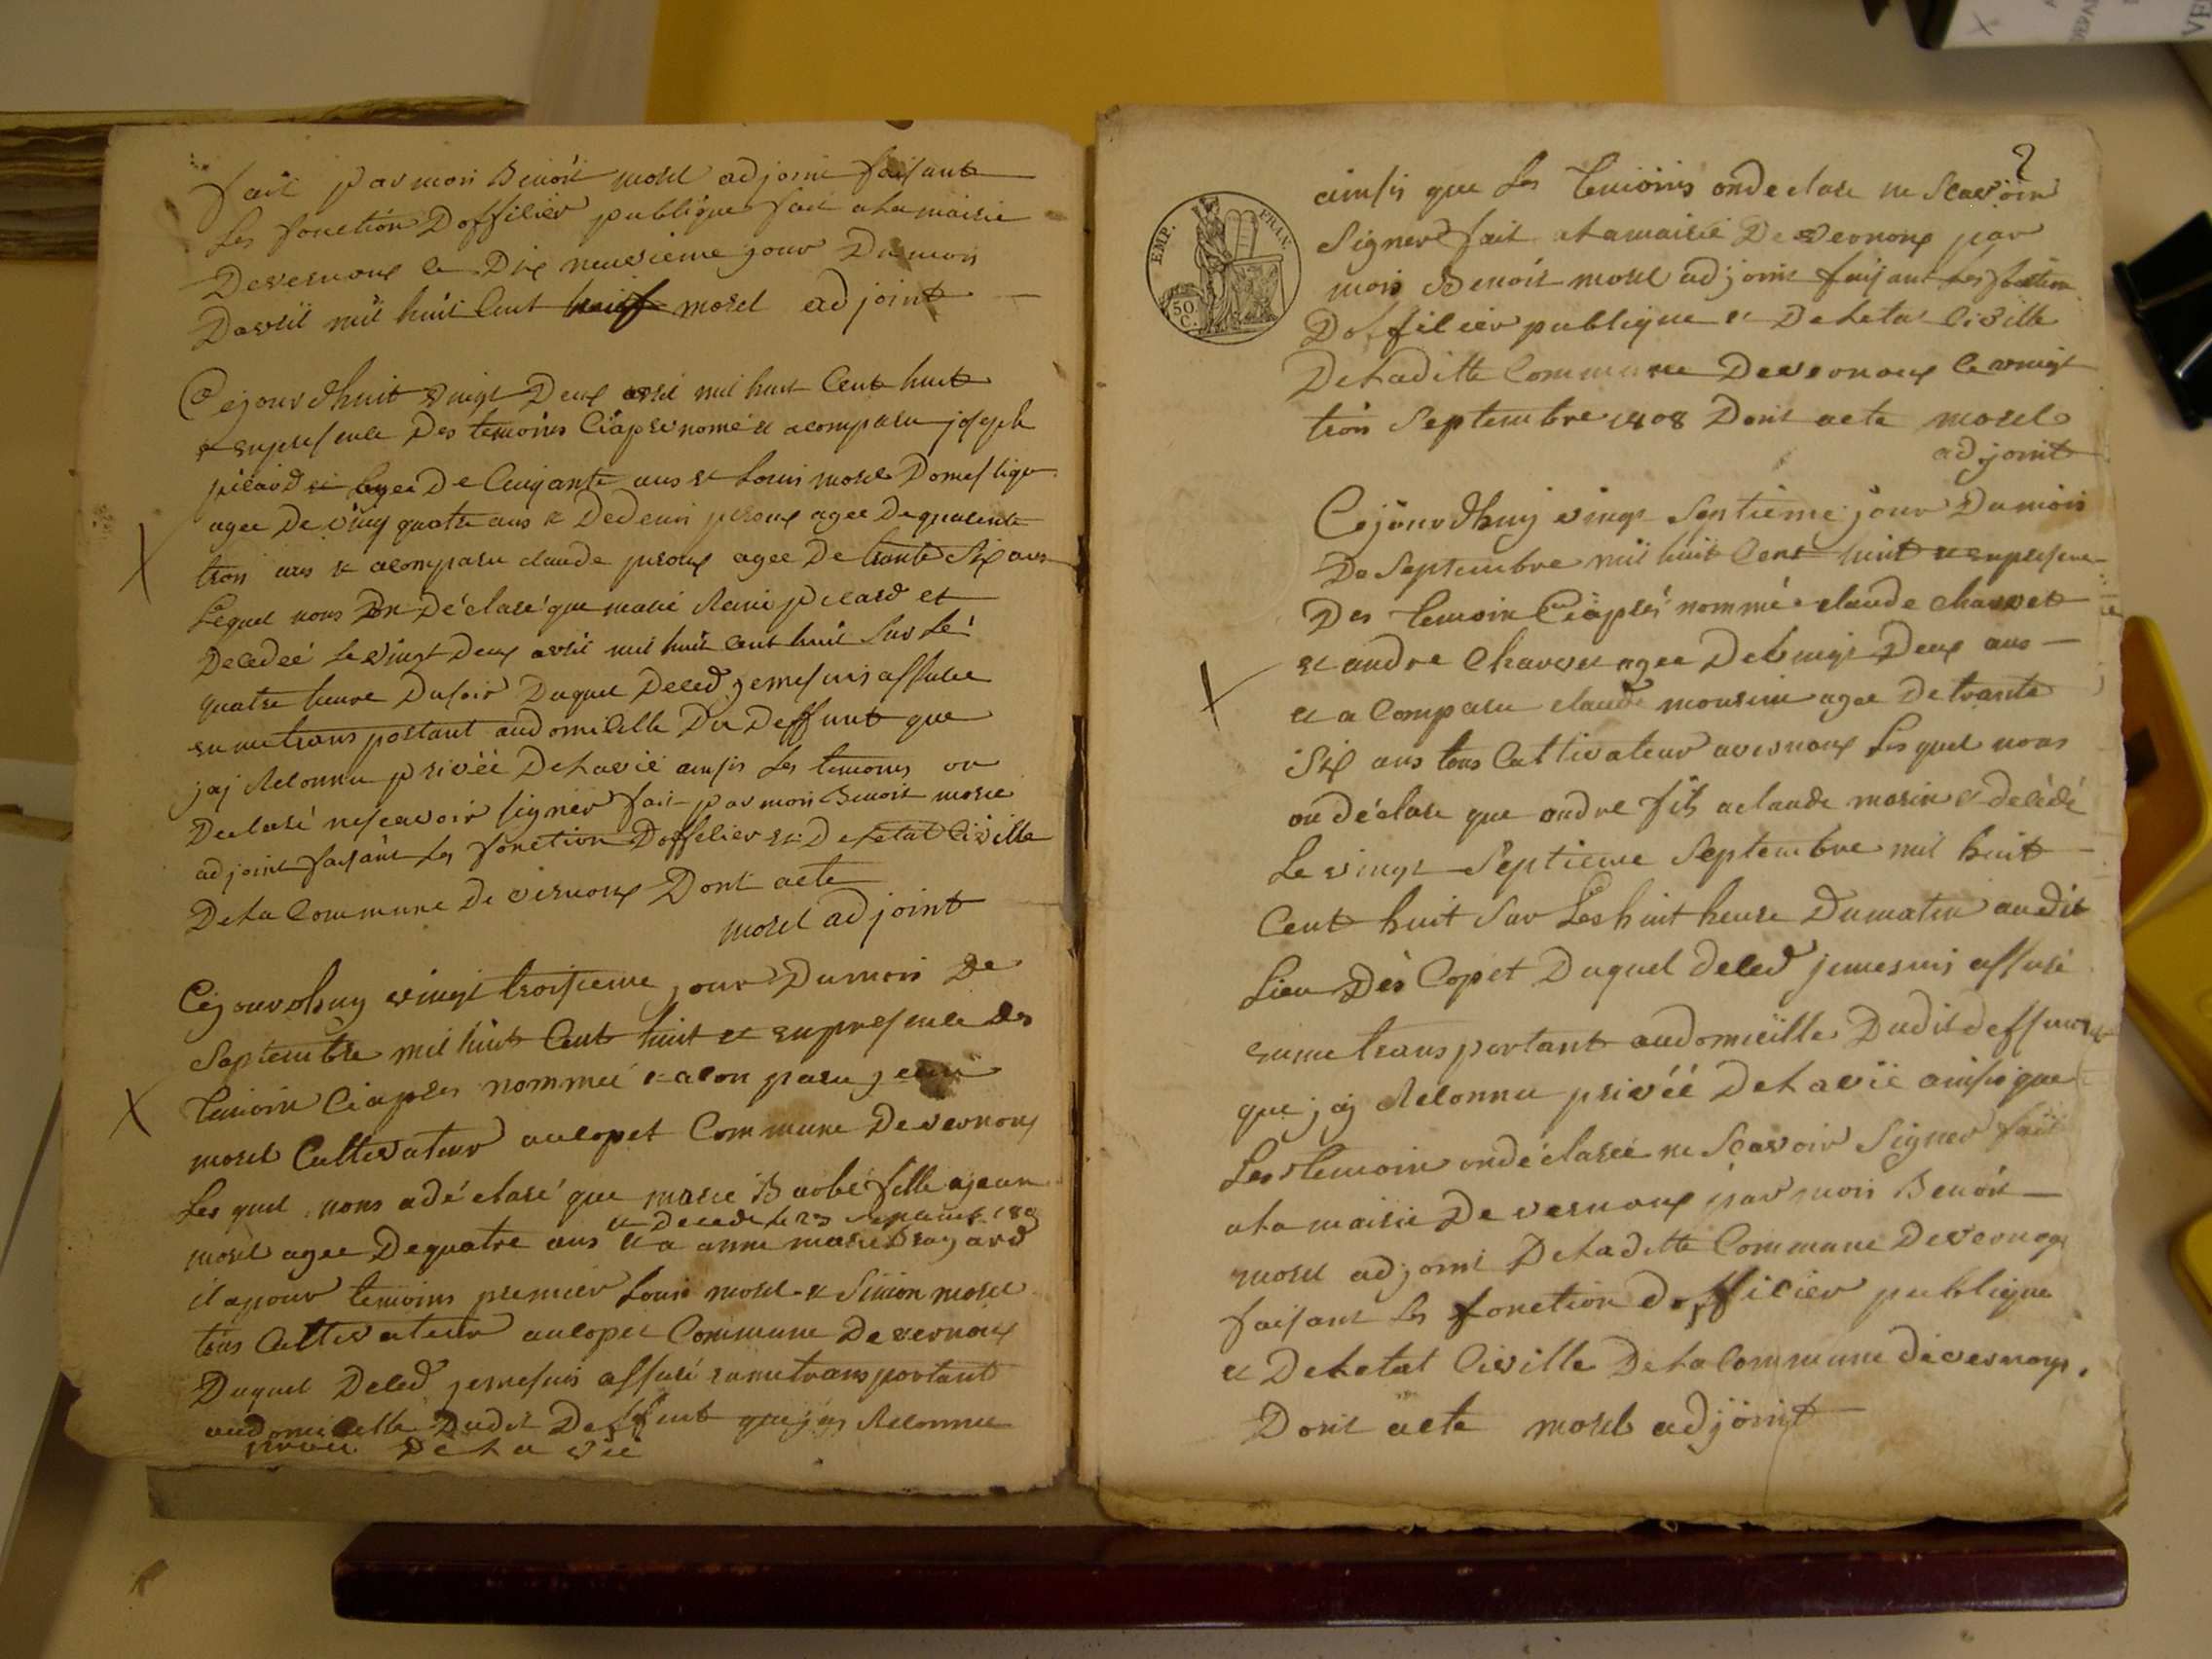 fait par moi Benoit morel adjoint faisant
Les fonction Dofficier publique fait ala mairie
Devernoux le Dix neuvieme jour Du mois
Davril mil huit Cent morel adjoint
Cejourdhuit vingt Deux avril mil huit Cent huit
& enpresence Des temoins Ciapres nomé & acomparu joseph
picard agee De Cinqante ans et Louis morel Domestique
agee De ving quatre ans & De agee De quarente
trois ans & acomparu claude agee De trante Six ans
Lequel nous Déclaré que marie picard et
Decedeé Le vingt Deux avril mil huit Cent huit Sur Lé
quatre heure Dusoir Duquel Deced jemesuis assuree
enmetransportant audomicille Du Deffunt que
jaj Reconnu privéé Delavie ainsis Les temoins on
Declaré nescavoir signer fait par moi Benoit morel
adjoint faisant Les fonction Dofficier et Deletat Civille
Dela Commune De vernoux Dont acte
morel adjoint
Cejourdhuy vingt troisieme jour Dumois De
Septembre mil huit Cent huit et enpresence des
temoin Ciapres nommeé & acomparu jean
morel Cultivateur aucopet Commune Devernoux
Les quel nous adéclaré que marie Barbe fille ajean
& Decede le 23 Septembre 180
morel agee Dequatre ans & a anne marie
il apour temoins premier Louis morel & Simon morel
tous Cultivateur aucopet Commune Devernoux
Duquel Deced jemesuis assuré enmetransportant
audomicille Dudit Deffunt quejay Reconnu
privee De La vie
2
EMP. FRAN.
50 C.
ainsis que Les temoins ondeclare ne Scavoir
Signer fait alamairie Devernoux par
moi Benoit morel adjoint faisant Les fontion
Dofficier publique & Deletat Civille
Deladitte Commune Devernoux le vingt
trois Septembre 1808 Dont acte morel
adjoint
Cejourdhuy vingt Septieme jour Dumois
De Septembre mil huit Cent huit & enpresence
Des temoin Ciaprés nommé claude chauvet
et andre Chauvet agee Devingt Deux ans
et a Comparu claude agee De trante
Six ans tous Cultivateur avernoux Les quel nous
on déclare que andre fils aclaude morin & decédé
Le vingt Septieme Septembre mil huit
Cent huit Sur Les huit heure Dumatin audit
Lieu Dès Copet Duquel deced jemesuis assuré
enme transportant audomicille Dudit deffunt
que jaj Reconnu privéé De La vie ainsis que
Les temoin ondéclareé ne Scavoir Signer fait
ala mairie De vernoux par moi Benoit
morel adjoint Deladitte Commune Devernoux
faisant Les fonction dofficier publique
et Deletat Civille Dela Commune devernoux.
Dont acte morel adjoint